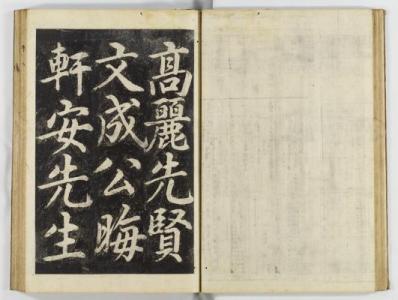 高麗先賢
文成公晦
軒安先生